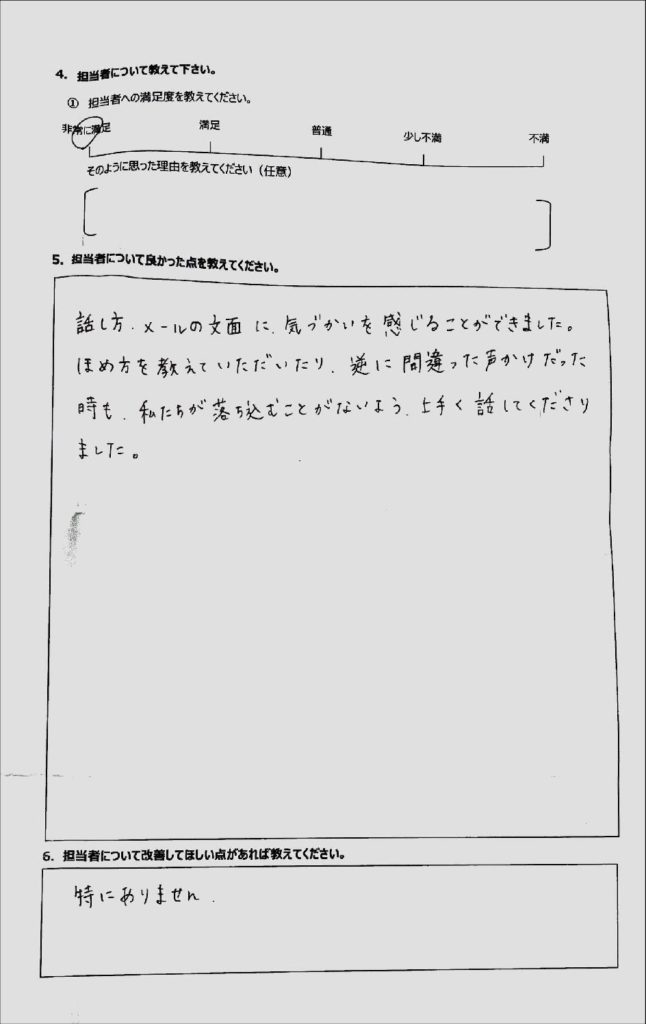 4. 担当者について教えて下さい。
① 担当者への満足度を教えてください。
非常に満足 満足 普通 少し不満 不満
そのように思った理由を教えてください（任意）
5. 担当者について良かった点を教えてください。
話し方・メールの文面に、気づかいを感じることができました。
ほめ方を教えていただいたり、逆に間違った声かけだった
時も、私たちが落ち込むことがないよう、上手く話してくださり
ました。
6. 担当者について改善してほしい点があれば教えてください。
特にありません.